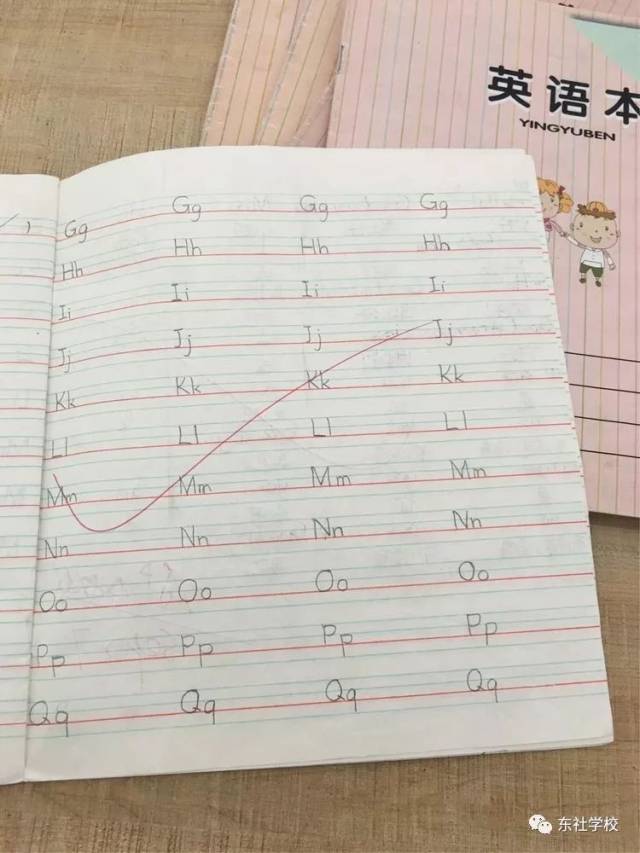 英语本
YINGYUBEN
Gg Gg Gg Gg
Hh Hh Hh Hh
Ii Ii Ii Ii
Jj Jj Jj Jj
Kk Kk Kk Kk
Ll Ll Ll Ll
Mm Mm Mm Mm
Nn Nn Nn Nn
Oo Oo Oo Oo
Pp Pp Pp Pp
Qq Qq Qq Qq
东社学校